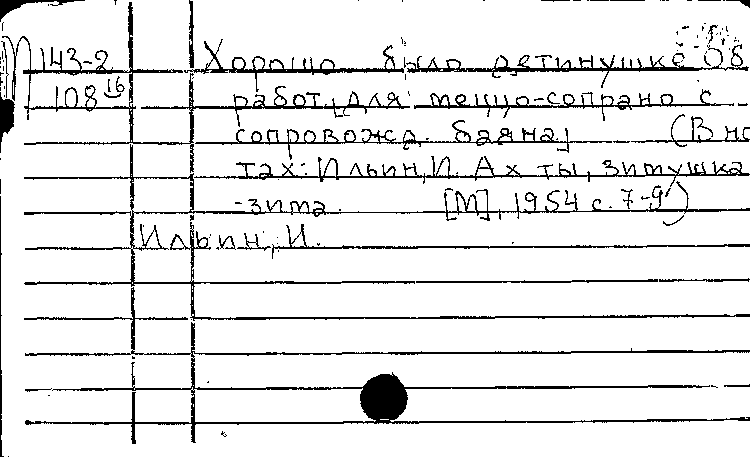 143-2 Хорошо было детинушке Об
108 16 работ. [для меццо-сопрано с
сопровожд. баяна] (В но
тах: Ильин, И. Ах ты, зимушка
-зима. [М], 1954 с. 7-9)
Ильин, И.